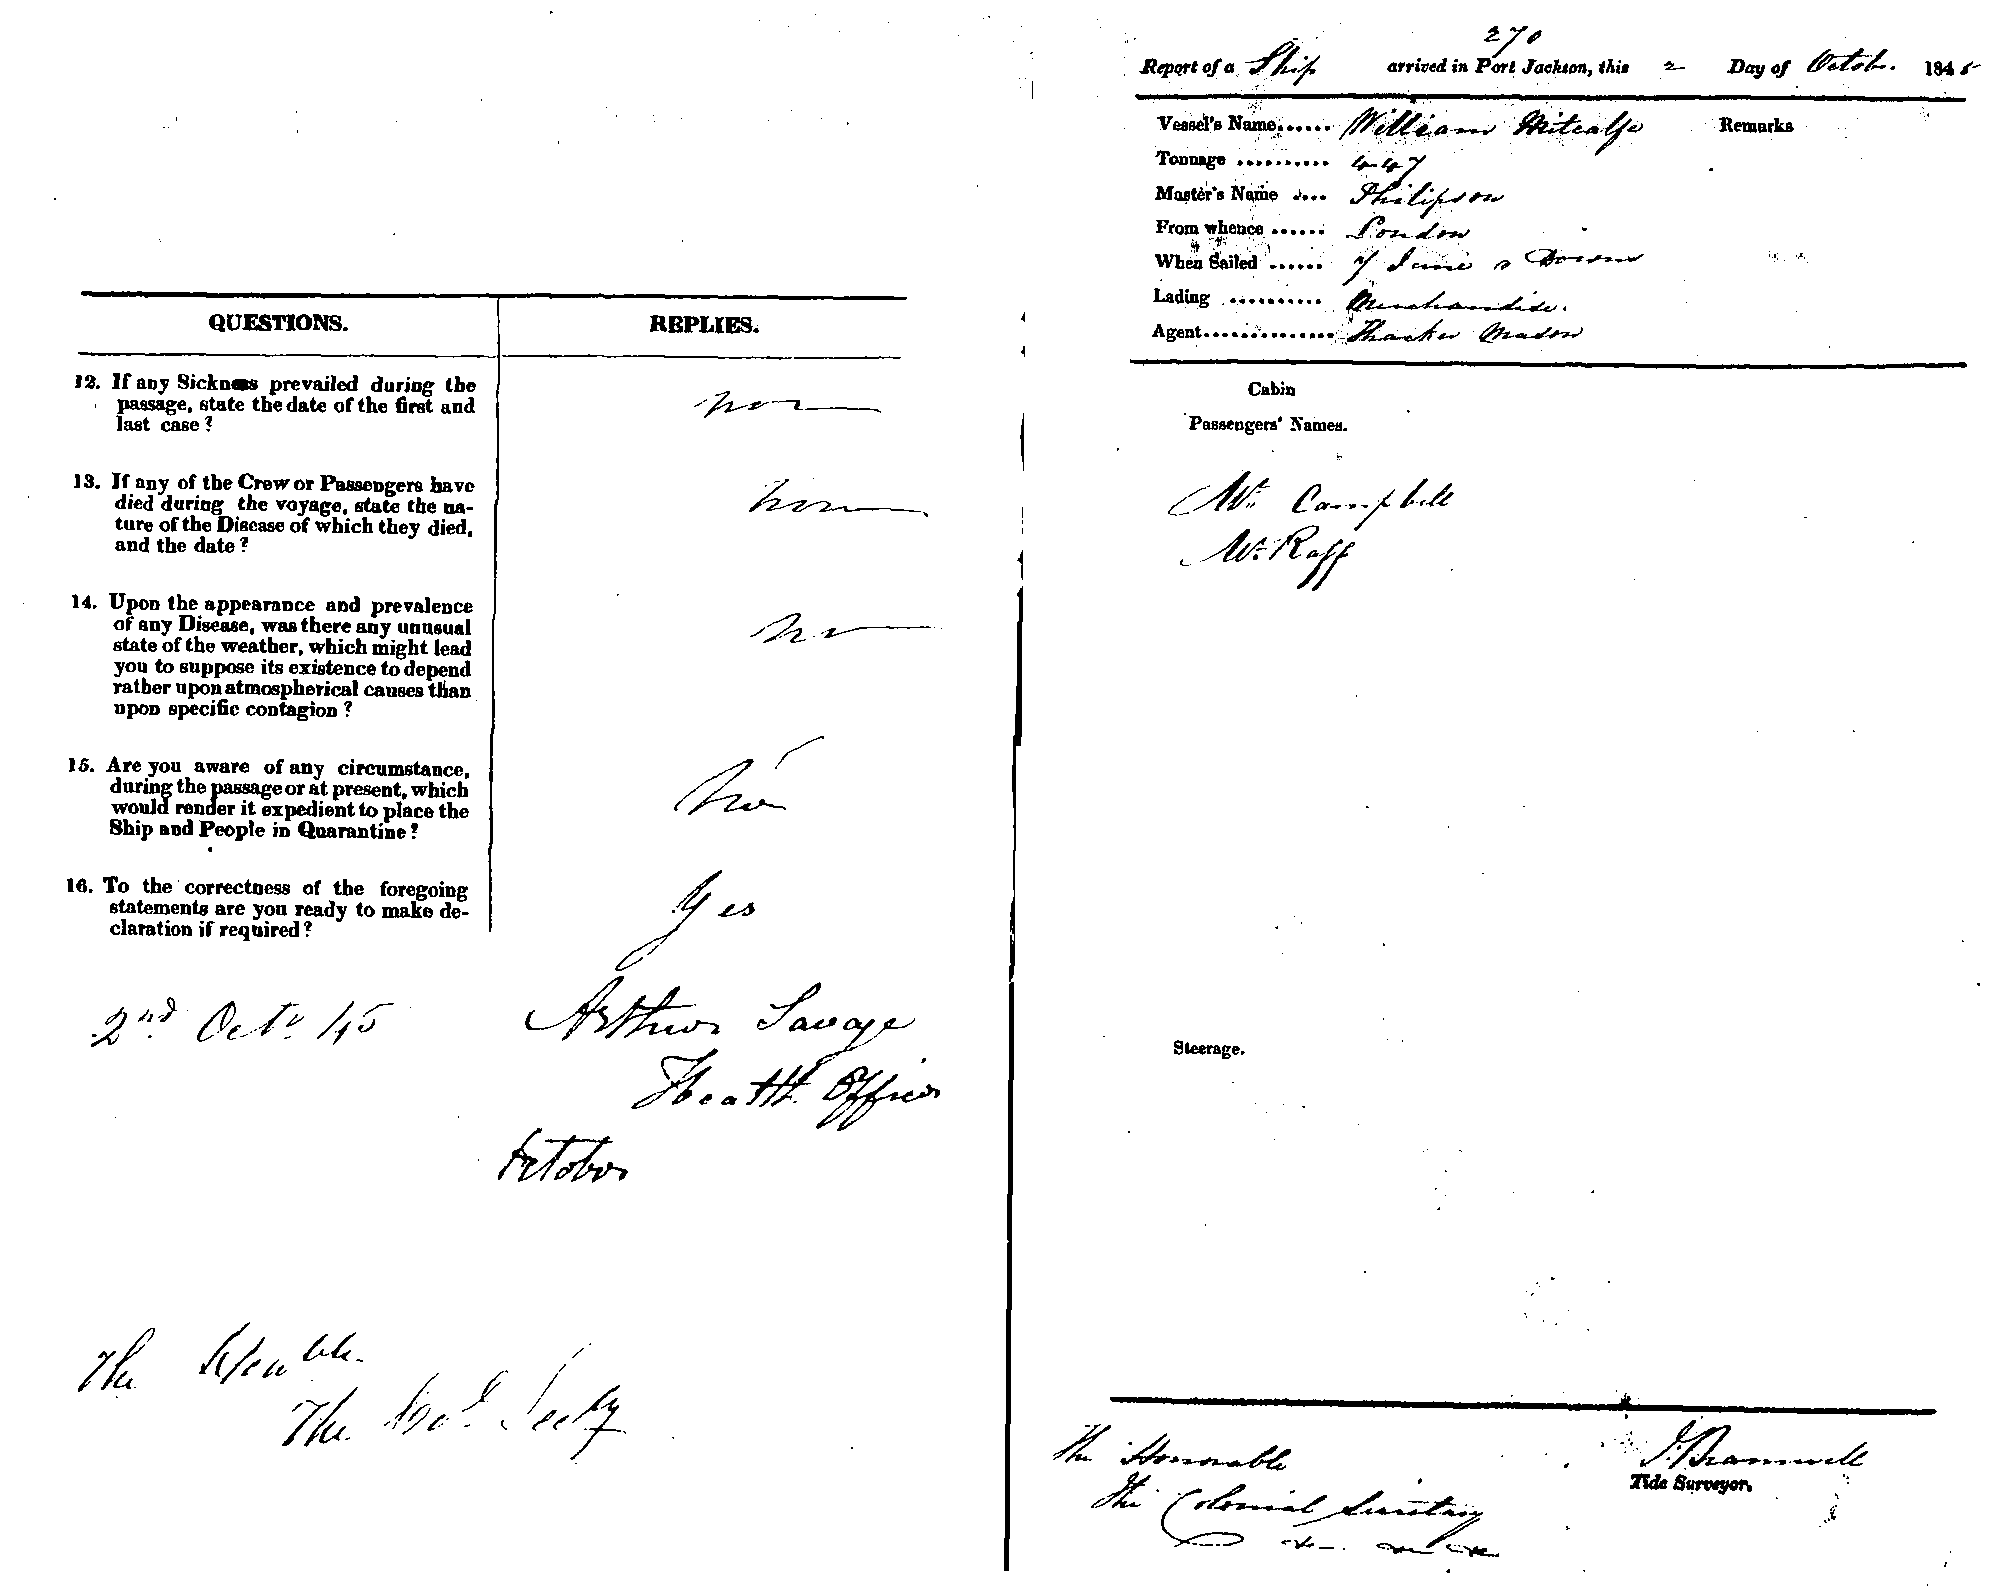 QUESTIONS. REPLIES.
12. If any Sickness prevailed during the
passage, state the date of the first and
last case?
none
13. If any of the Crew or Passengers have
died during the voyage, state the na-
ture of the Disease of which they died,
and the date?
none
14. Upon the appearance and prevalence
of any Disease, was there any unusual
state of the weather, which might lead
you to suppose its existence to depend
rather upon atmospherical causes than
upon specific contagion?
no
15. Are you aware of any circumstance,
during the passage or at present, which
would render it expedient to place the
Ship and People in Quarantine?
No
16. To the correctness of the foregoing
statements are you ready to make de-
claration if required?
Yes
2nd Octr /45
Arthur Savage
Health Officer
October
The Honble.
The Col Secty
270
Report of a Ship arrived in Port Jackson, this 2 Day of Octob. 1845
Vessel's Name...... William Metcalfe Remarks
Tonnage .......... 447
Master's Name .... Philipson
From whence ...... London
When Sailed ...... 7 June Downs
Lading .......... Merchandise.
Agent.............. Thacker Mason
Cabin
Passengers' Names.
Mr. Campbell
Mr. Raff
Steerage.
The Honorable
The Colonial Secretary
J. Bramwell
Tide Surveyor.